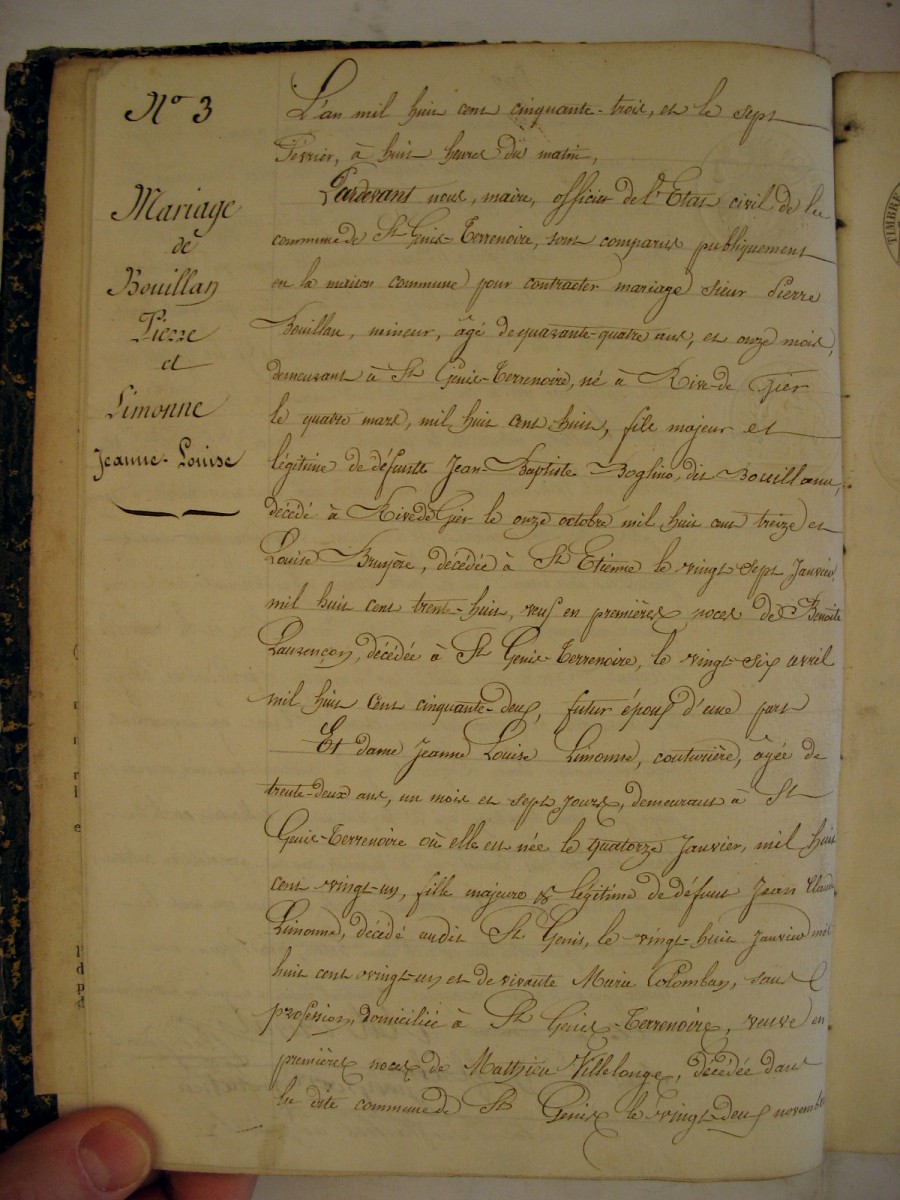 N° 3
Mariage
de
Bouillan
Pierre
et
Limonne
Jeanne-Louise
L'an mil huit cent cinquante-trois, et le sept
Février, à huit heures du matin,
Pardevant nous, maire, officier de l'Etat civil de la
commune de St Genis-Terrenoire, sont comparus publiquement
en la maison commune pour contracter mariage sieur Pierre
Bouillan, mineur, âgé de quarante-quatre ans, et onze mois,
demeurant à St Genis-Terrenoire, né à Rive-de Gier
le quatre mars, mil huit cent huit, fils majeur et
légitime de défunts Jean-Baptiste Boglino, dit Bouillanu,
décédé à Rive de Gier le onze octobre mil huit cent treize et
Louise Bruyère, décédée à St Etienne le vingt sept Janvier
mil huit cent trent-huit, veuf en premières noces de Benoîte
Lauzençon, décédée à St Genis-Terrenoire, le vingt-six avril
mil huit cent cinquante-deux, futur époux d'une part
Et dame Jeanne Louise Limonne, couturière, âgée de
trente-deux ans, un mois et sept jours, demeurant à St
Genis-Terrenoire où elle est née le quatorze Janvier, mil huit
cent vingt-un, fille majeure & légitime de défunt Jean Claude
Limonne, décédé audit St Genis, le vingt-huit Janvier mil
huit cent vingt-un et de vivante Marie Colomban, sans
profession, domiciliée à St Genis-Terrenoire, veuve en
premières noces de Mathieu Villelonge, décédée dans
la dite commune de St Genis le vingt-deux novembre
TIMBRE